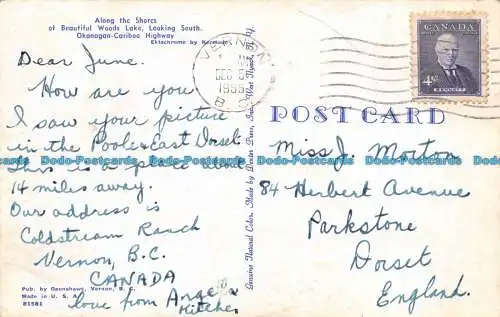 Along the Shores
of Beautiful Woods Lake, Looking South.
Okanagan-Cariboo Highway
Ektachrome by
Dear June.
How are you
I saw your picture
in the Poole & East Dorset.
This is a place about
14 miles away.
Our address is
Coldstream Ranch
Vernon, B.C.
CANADA
love from Angela
Hitchen
Pub. by Vernon, B. C.
Made in U. S. A.
VERNON
DEC
1955
B.C.
CANADA
4¢
POST CARD
Genuine Natural Color. Made by Dexter Press, Inc. West Nyack, N. Y.
Miss J. Morton
84 Herbert Avenue
Parkstone
Dorset
England.
Dodo-Postcards Dodo-Postcards Dodo-Postcards Dodo-Postcards Dodo-Postcards